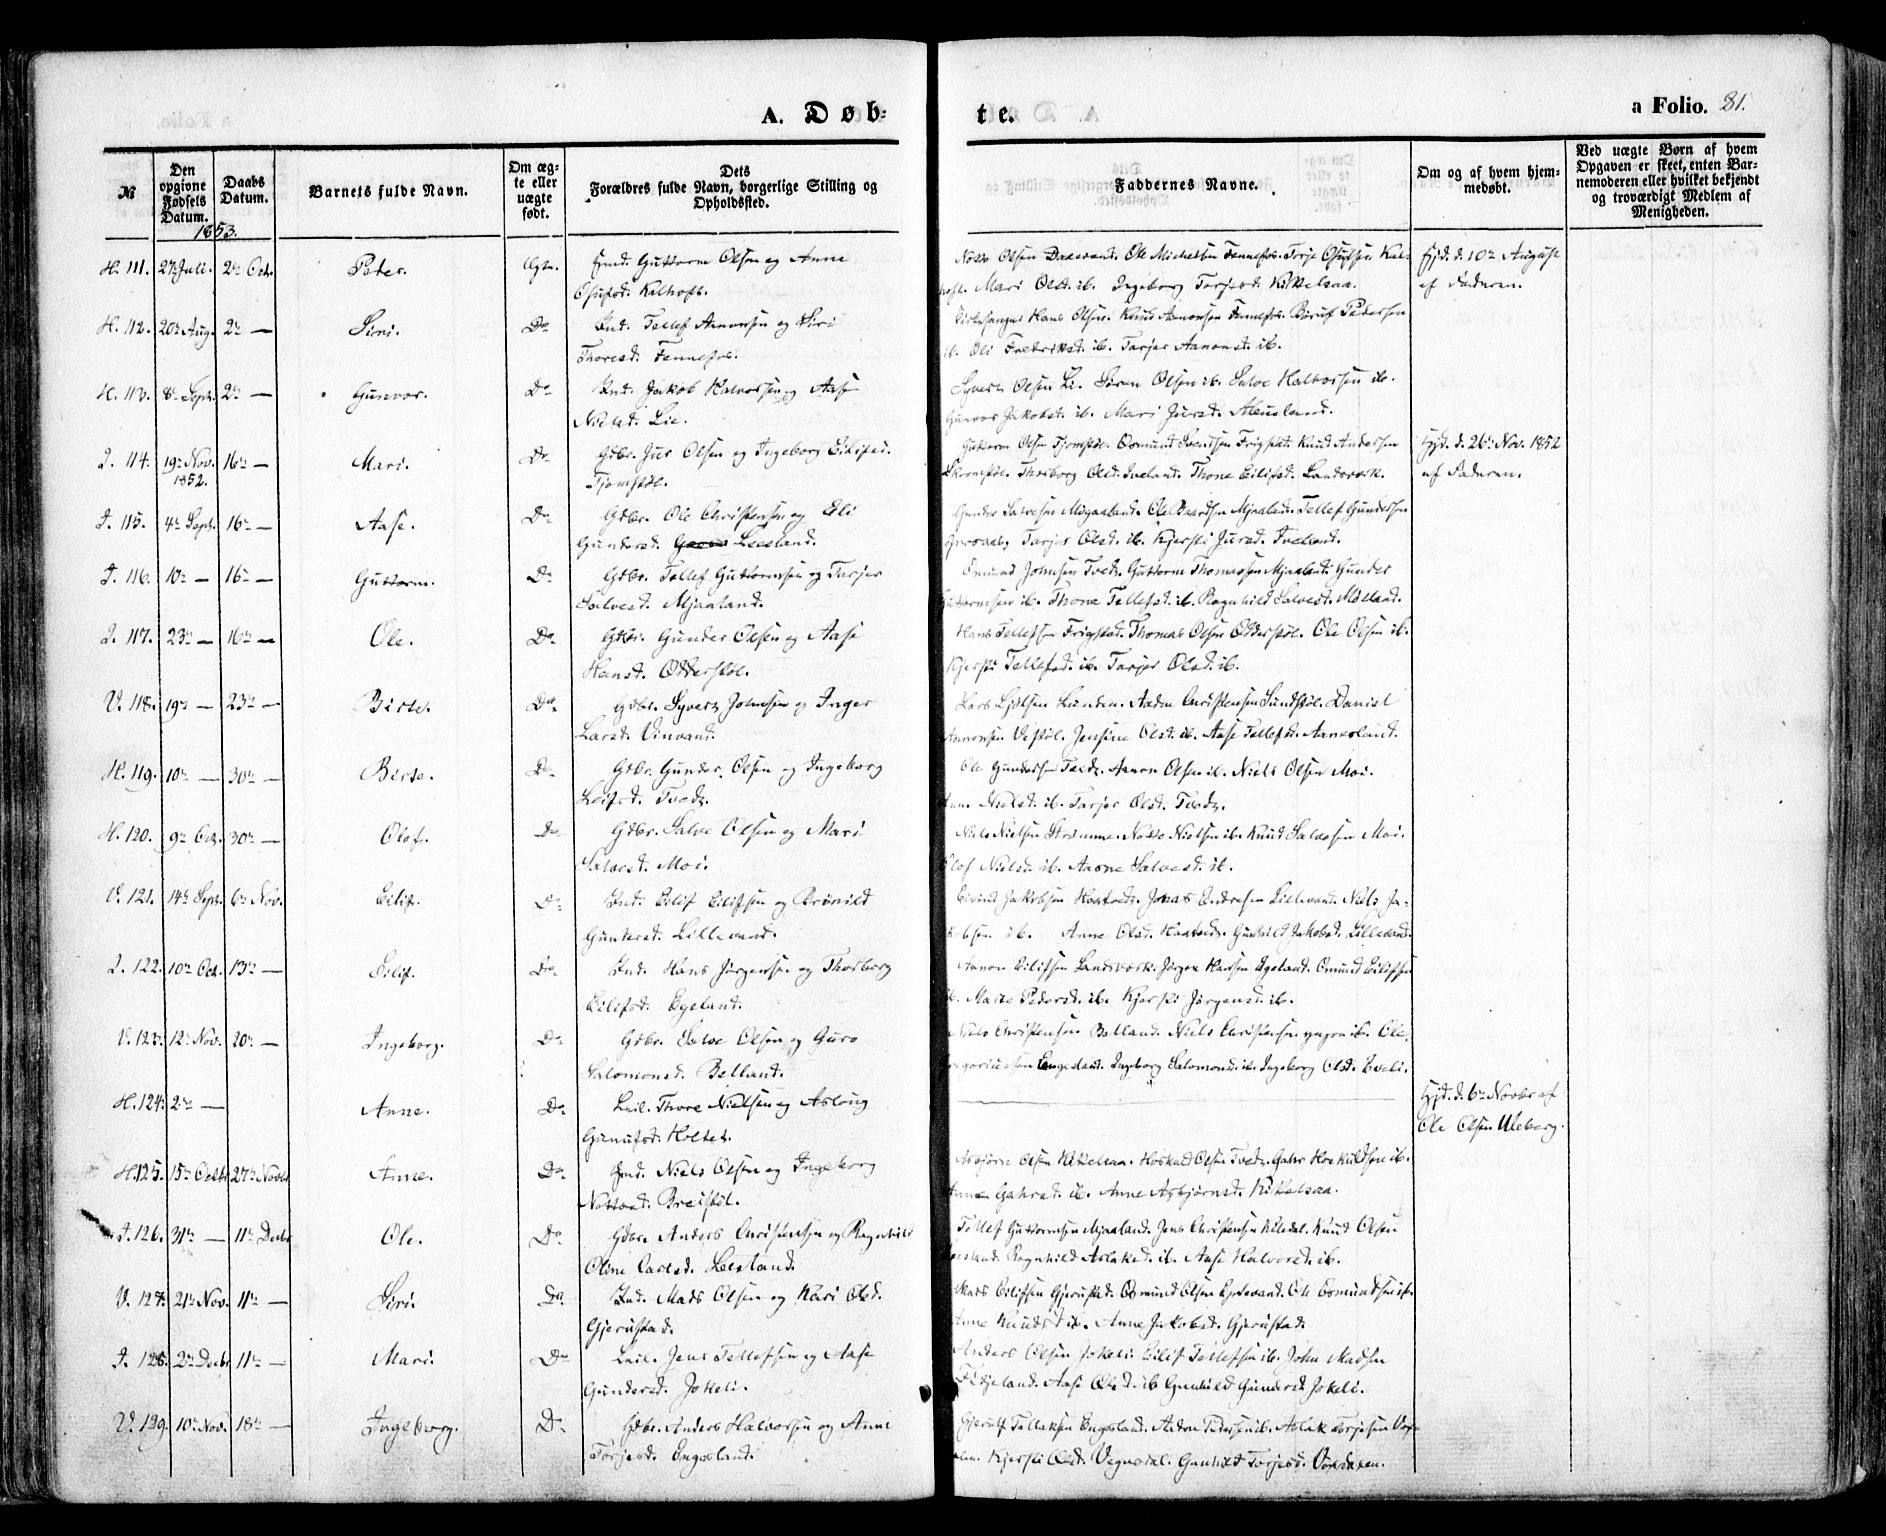 A. Døb-
te.
a Folio. 81.
№
Den opgivne Fødsels Datum.
Daabs Datum.
Barnets fulde Navn.
Om ægte eller uægte født.
Dets Forældres fulde Navn, borgerlige Stilling og Opholdssted.
Faddernes Navne.
Om og af hvem hjemmedøbt.
Ved uægte Børn af hvem Opgaven er skeet, enten Barnemoderen eller hvilket bekjendt og troværdigt Medlem af Menigheden.
1853.
H. 111. 27de Juli. 2den Oct. Peter. Ægte. Ind. Guttorm Olsen og Anne
Osufsd. Kalhoft.
Notto Olsen Ole Michelsen Fennefos. Torje Osufsen
Mari Olsd. ib. Ingeborg Torjesd. Kittelsaa.
Hjd. d. 10de August
af Faderen.
H. 112. 20de Aug. 2den — Siri. Do Ind. Tellef Aanonsen og Siri
Thoresd. Fennefos.
Kirkesanger Hans Olsen. Knud Aanonsen Fennefos. Pedersen
ib. Oli Fredriksd. ib. Tarjer Aanonsd. ib.
H. 113. 8de Sept. 2den — Gunvor. Do Ind. Jakob Halvorsen og Aase
Nielsd. Lie.
Syvert Olsen Li. Søren Olsen ib. Salve Halvorsen ib.
Gunvor Jakobsd. ib. Mari Jursd.
I. 114. 19de Nov. 1852. 16de — Mari. Do Gdbr. Jur Olsen og Ingeborg Eilifsd.
Tjomstøl.
Guttorm Olsen Tjomstøl. Osmund Svendsen Frigstad. Knud Andersen
Thorborg Olsd. Iveland. Thone Eilifsd. Landsverk.
Hjd. d. 26de Nov. 1852
af Faderen.
I. 115. 4de Sept. 16de — Aase. Do Gdbr. Ole Christensen og Eli
Gundersd. Leesland.
Gunder Salvesen Mjaaland. Ole Mjaaland. Tellef Gundersen
Tarjer Olsd. ib. Kjersti Jursd. Iveland.
I. 116. 10de — 16de — Guttorm. Do Gdbr. Tellef Guttormsen og Tarjer
Salvesd. Mjaaland.
Omund Johnsen Tvedt. Guttorm Thomassen Mjaaland. Gunder
Guttormsen ib. Thone Tellefsd. ib. Ragnhild Salvesd.
I. 117. 23de — 16de — Ole. Do Gdbr. Gunder Olsen og Aase
Hansd. Odderstøl.
Hans Tellefsen Frigstad. Thomas Olsen Odderstøl. Ole Olsen ib.
Kjersti Tellefsd. ib. Tarjer Olsd. ib.
V. 118. 19de — 23de — Birte. Do Gdbr. Syvert Johnsen og Inger
Larsd. Vinvand.
Lars Lunden. Aadne Christensen Sundstøl. Daniel
Aanonsen Vestøl. Jensine Olsd. ib. Aase Tellefsd.
H. 119. 10de — 30te — Birte. Do Gdbr. Gunder Olsen og Ingeborg
Leifsd. Tvedt.
Ole Gundersen Tvedt. Aanon Olsen ib. Niels Olsen Moi.
Nielsd. ib. Tarjer Olsd. Tvedt.
H. 120. 9de Oct. 30te — Olof. Do Gdbr. Salve Olsen og Mari
Salvesd. Moi.
Niels Nielsen Strømme. Notto Nielsen ib. Knud Salvesen Moi.
Olof Nielsd. ib. Aasne Salvesd. ib.
V. 121. 14de Sept. 6te Nov. Eilif. Do Ind. Eilif Eilifsen og Brønild
Gundersd. Lillevand.
Eivind Jakobsen Haatvedt. Jonas Endresen Lillevand. Niels Ja-
kobsen ib. Anne Olsd. Haatvedt. Gunhild Jakobsd. Lillevand.
I. 122. 10de Oct. 13de — Eilif. Do Ind. Hans Jørgensen og Thorborg
Eilifsd. Egeland.
Aanon Eilifsen Landsverk. Jørgen Hansen Egeland. Omund Eilifsen
ib. Marte Pedersd. ib. Kjersti Jørgensd. ib.
V. 123. 12te Nov. 20de — Ingeborg. Do Gdbr. Salve Olsen og Guro
Salomonsd. Belland.
Niels Christensen Belland. Niels Christensen yngre ib. Ole
Gregoriussen Engesland. Ingeborg Salomonsd. ib. Ingeborg Olsd.
H. 124. 2den — Anne. Do Leil. Thore Nielsen og Aslaug
Gunufsd. Holtet.
Hjd. d. 6te Novbr af
Ole Olsen Uleberg.
H. 125. 15de Octbr 27de Novbr Anne. Do Ind. Niels Olsen og Ingeborg
Nottosd. Breistøl.
Asbjørn Olsen Kittelsaa. Hoskuld Olsen Tvedt. Hoskuldsen ib.
Anne ib. Anne Asbjørnsd. Kittelsaa.
I. 126. 31te — 11te Decbr Ole. Do Gdbr. Anders Christensen og Ragnhild
Oline Carlsd. Leesland.
Tellef Guttormsen Mjaaland. Jens Christensen Knud Olsen
Leesland. Ragnhild Aslaksd. ib. Aase Halvorsd. ib.
V. 127. 21de Nov. 11te — Siri. Do Ind. Mads Olsen og Kari Olsd.
Gjerustad.
Mads Eilifsen Gjerustad. Osmund Olsen Ole Osmundsen ib.
Anne Knudsd. ib. Anne Jakobsd. Gjerustad.
I. 128. 2den Decbr 11te — Mari. Do Leil. Jens Tellefsen og Aase
Gundersd. Jokeli.
Anders Olsen Jokeli. Eilif Tellefsen ib. John Madsen
Fidjeland. Aase Olsd. ib. Gunhild Gundersd. Jokeli.
V. 129. 10de Nov. 18de — Ingeborg. Do Gdbr. Anders Halvorsen og Anne
Torjesd. Engesland.
Gjerulf Engesland. Aadne Pedersen ib. Aslak Torjesen
Kjersti Olsd. Vegusdal. Gunhild Torjesd.